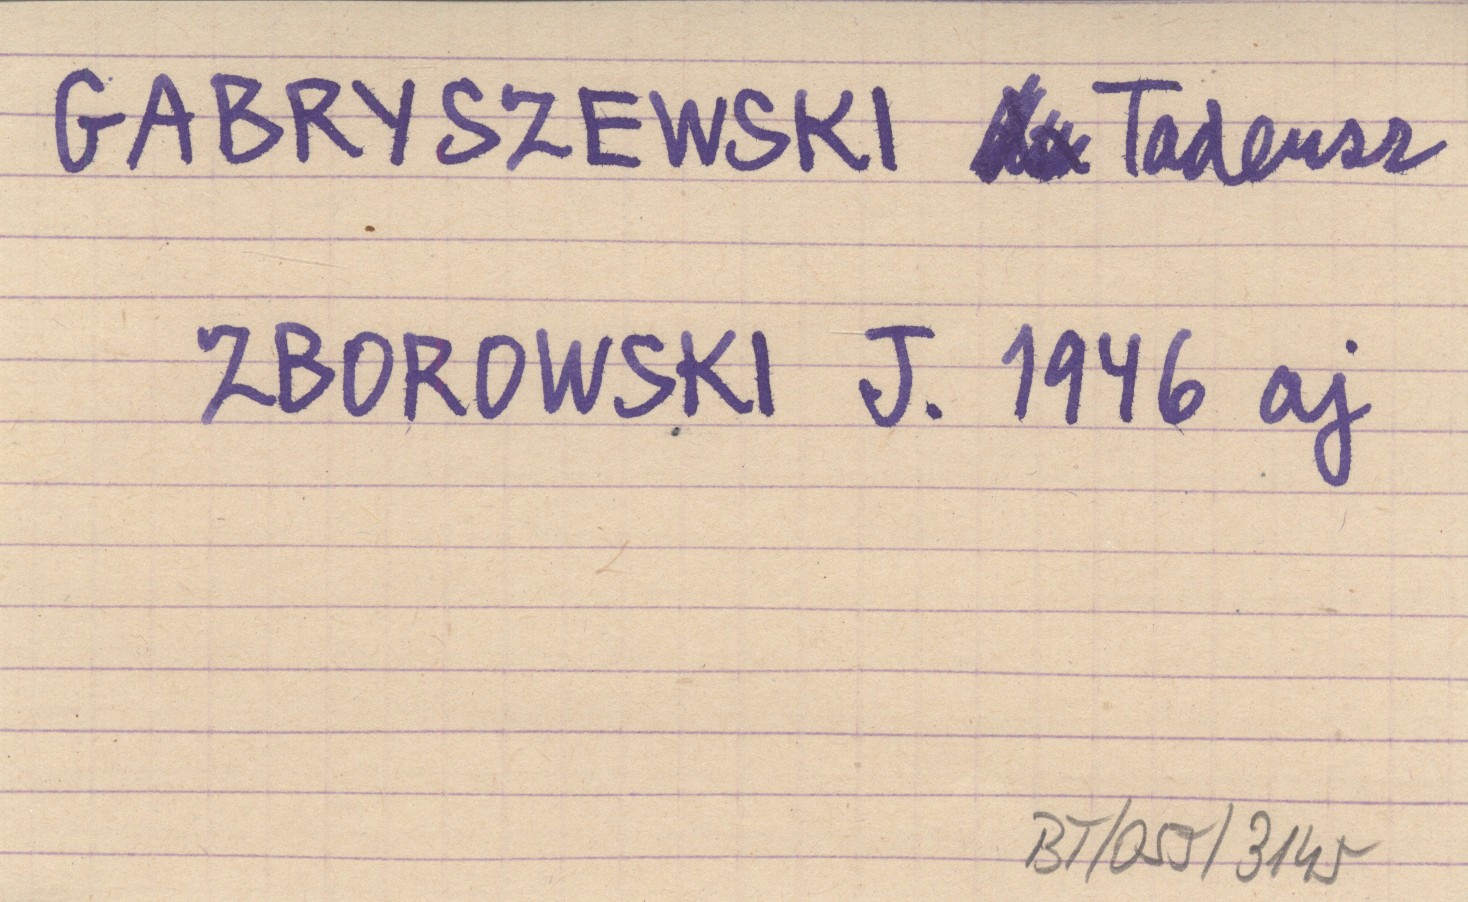 GABRYSZEWSKI Tadeusz
ZBOROWSKI J. 1946 aj
BT/OSJ/3145